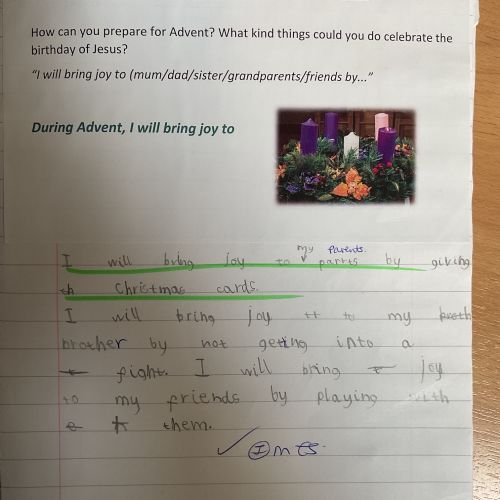 How can you prepare for Advent? What kind things could you do celebrate the
birthday of Jesus?
“I will bring joy to (mum/dad/sister/grandparents/friends by...”
During Advent, I will bring joy to
my Parents.
I will bring joy to parrts by giving
th Christmas cards.
I will bring joy tt to my broth
brother by not geting into a
fight. I will bring t joy
to my friends by playing with
e h them.
✓ I